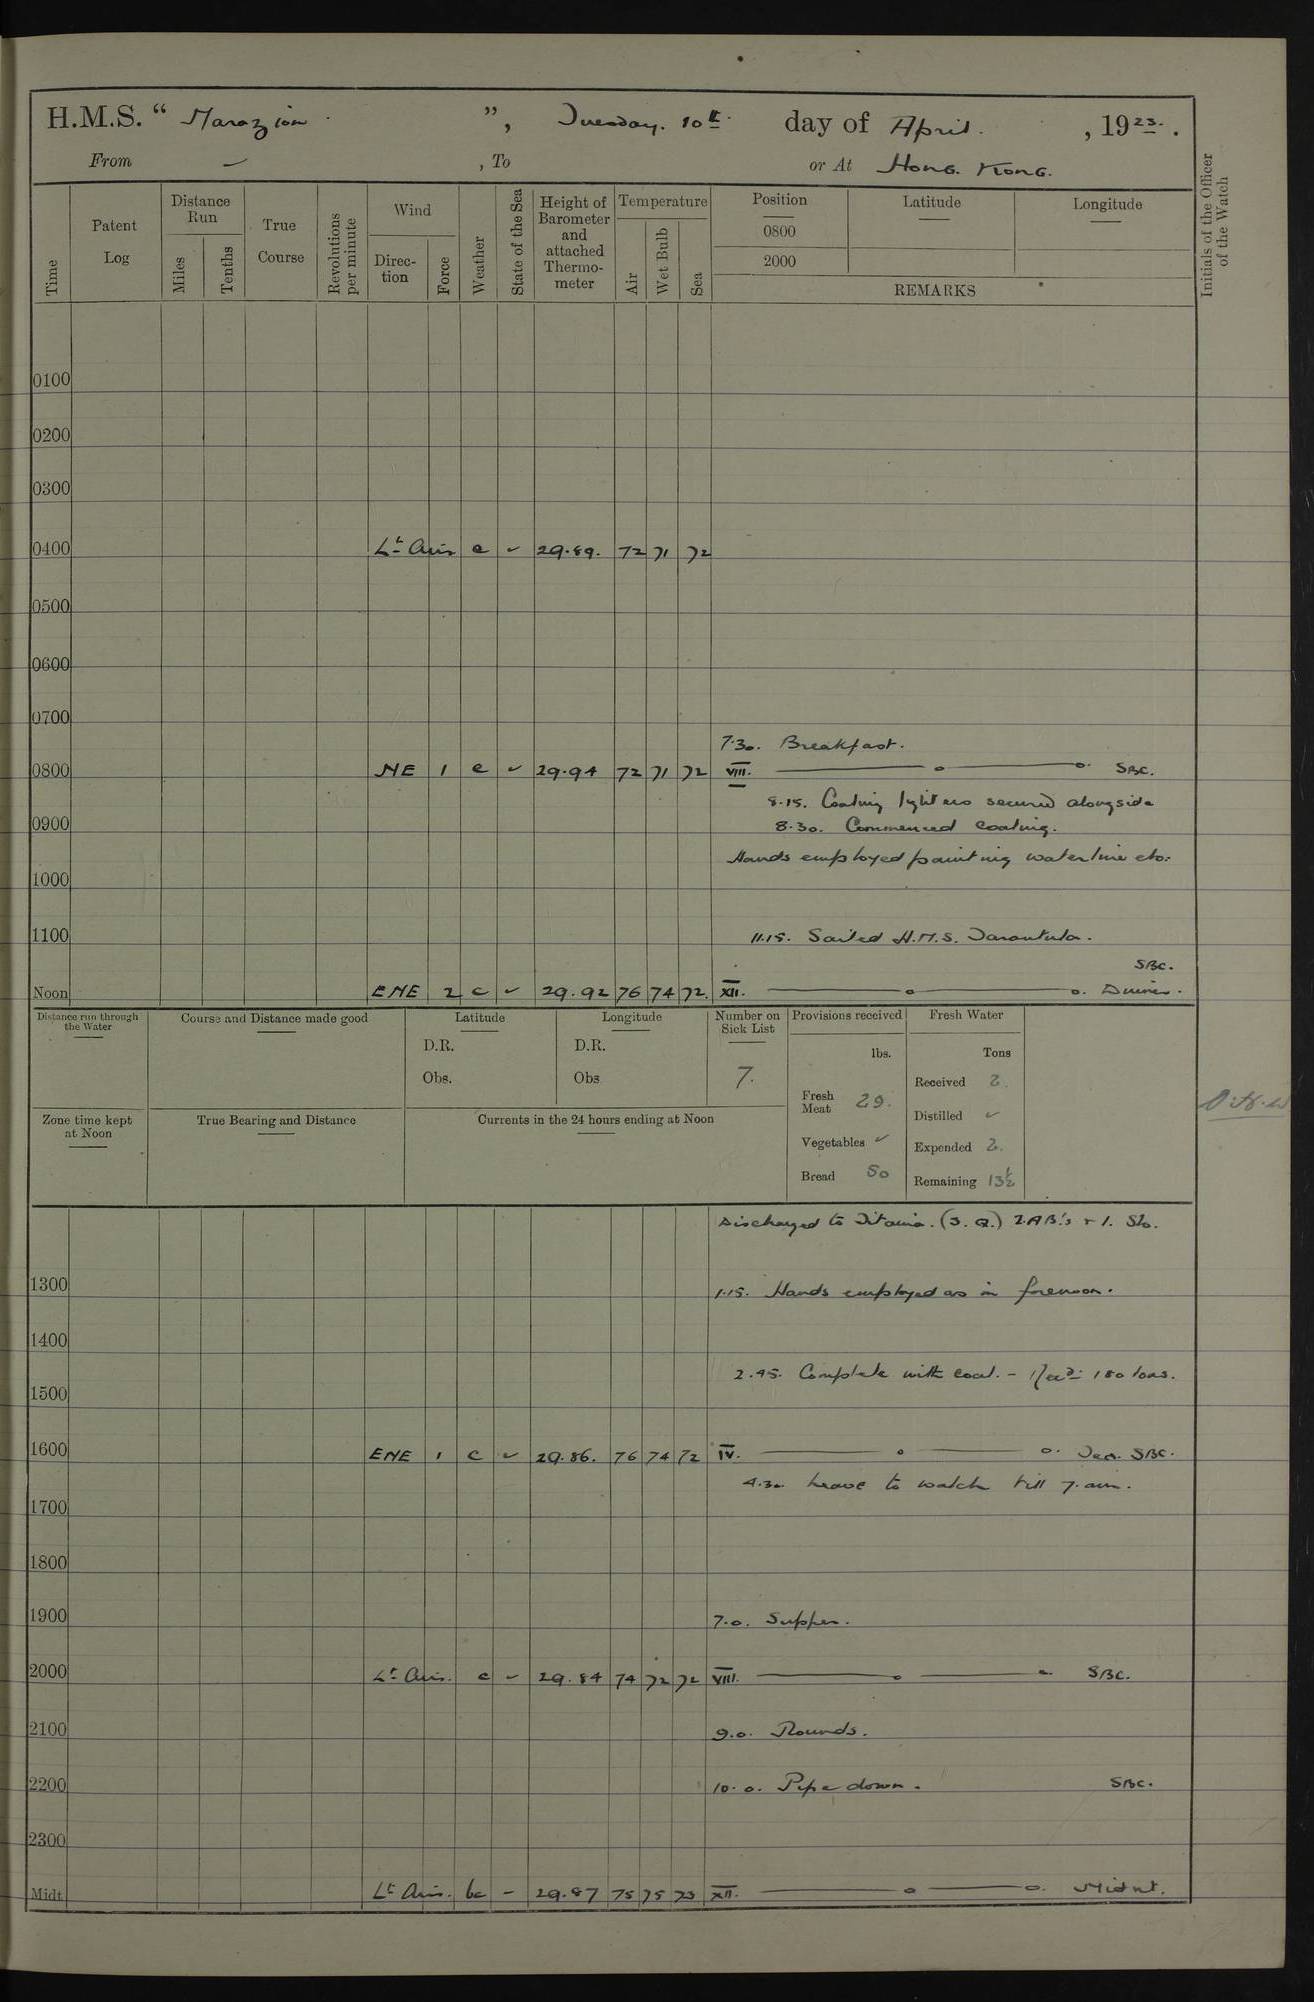 H.M.S. “ Marazion ”, Tuesday. 10th day of April. , 1923.
From – , To or At Hong. Kong.
Time Patent Log Distance Run Miles Tenths True Course Revolutions per minute Wind Direc-tion Force Weather State of the Sea Height of Barometer and attached Thermo-meter Temperature Air Wet Bulb Sea Position 0800 2000 Latitude Longitude
REMARKS
Initials of the Officer of the Watch
0100
0200
0300
0400 Lt Airs c ✓ 29.89. 72 71 72
0500
0600
0700
7.30. Breakfast.
0800 NE 1 c ✓ 29.94 72 71 72 VIII. SBC.
8.15. Coaling lighters secured alongside
0900 8.30. Commenced coaling.
Hands employed painting waterline etc.
1000
1100 11.15. Sailed H.M.S. Tarantula.
SBC.
Noon ENE 2 c ✓ 29.92 76 74 72. XII. Dinner.
Distance run through the Water
Course and Distance made good
Latitude
D.R.
Obs.
Longitude
D.R.
Obs
Number on Sick List
7.
Provisions received
lbs.
Fresh Meat 29.
Vegetables ✓
Bread 50
Fresh Water
Tons
Received 2.
Distilled ✓
Expended 2.
Remaining 13½
Zone time kept at Noon
True Bearing and Distance
Currents in the 24 hours ending at Noon
Discharged to Titania. (S.Q.) 2.AB's + 1. Sto.
1300 1.15. Hands employed as in forenoon.
1400
2.45. Complete with coal. – Recd 180 tons.
1500
1600 ENE 1 c ✓ 29.86. 76 74 72 IV. Tea. SBC.
4.30 Leave to watch till 7.am.
1700
1800
1900 7.0. Supper.
2000 Lt Airs. c ✓ 29.84 74 72 72 VIII. SBC.
2100 9.0. Rounds.
2200 10.0. Pipe down. SBC.
2300
Midt. Lt Airs. bc – 29.87 75 75 73 XII. Midnt.